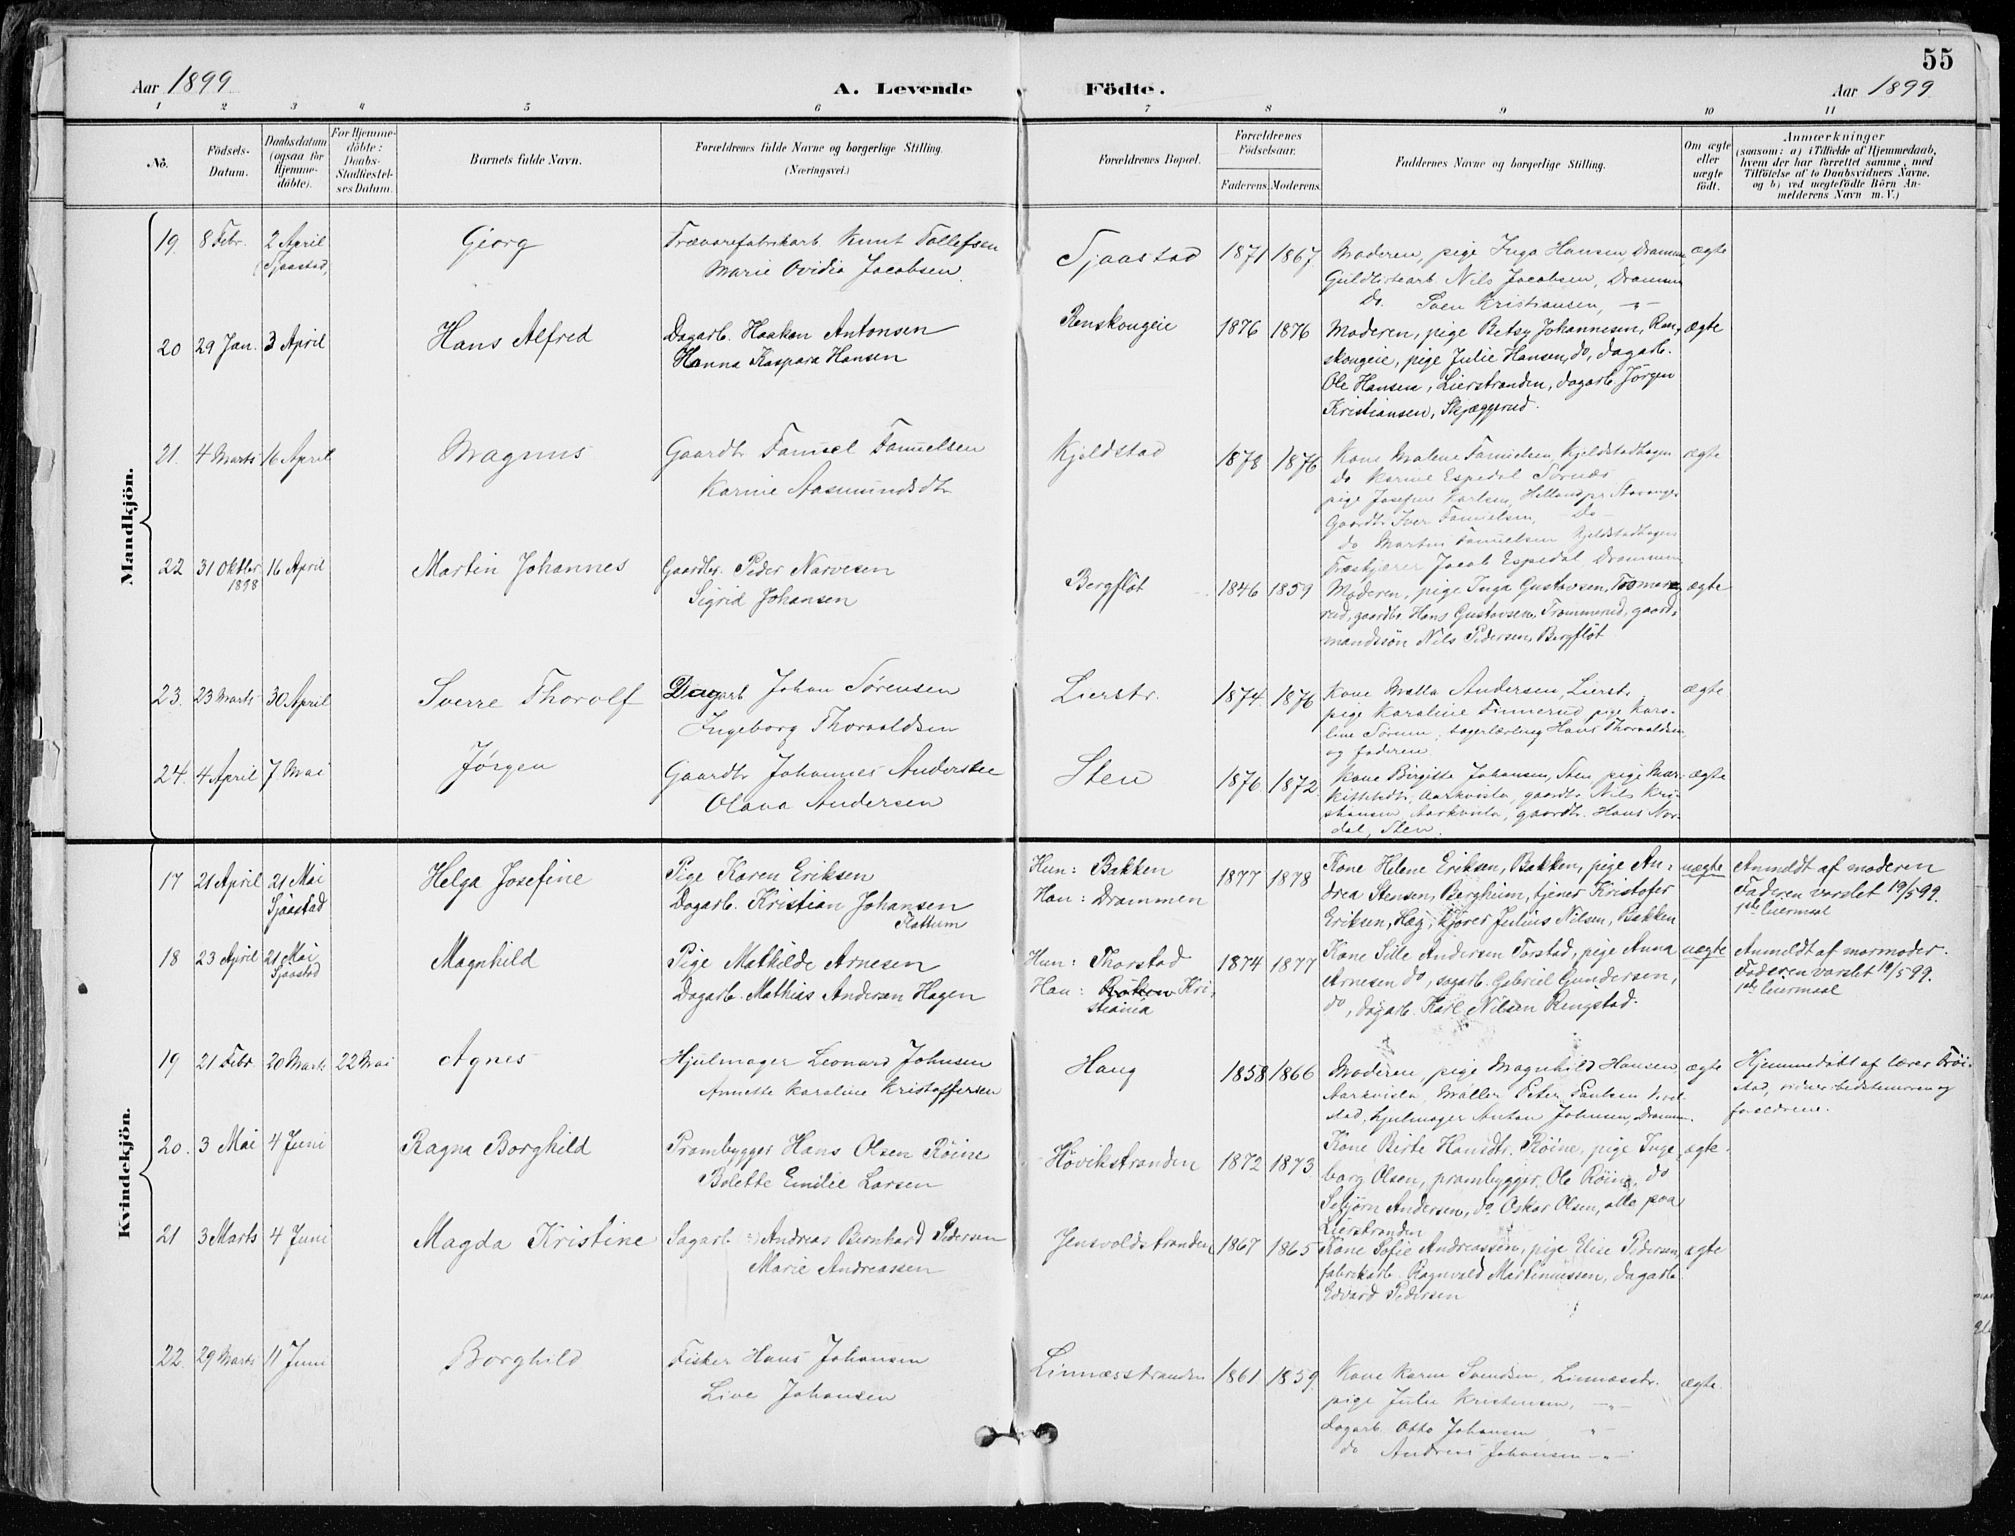 55
Aar 1899
A. Levende
Födte.
Aar 1899
1 2 3 4 5 6 7 8 9 10 11
No.
Födsels-
Datum.
Daabsdatum
(ogsaa for
Hjemme-
döbte).
For Hjemme-
döbte:
Daabs-
Stadfæstel-
ses Datum.
Barnets fulde Navn.
Forældrenes fulde Navne og borgerlige Stilling.
(Næringsvei.)
Forældrenes Bopæl.
Forældrenes
Födselsaar.
Faderens. Moderens.
Faddernes Navne og borgerlige Stilling.
Om ægte
eller
uægte
födt.
Anmærkninger
(saasom: a) i Tilfælde af Hjemmedaab,
hvem der har forrettet samme, med
Tilföielse af to Daabsvidners Navne,
og b) ved uægtefödte Börn An-
melderens Navn m. V.)
Mandkjön.
19. 8 Febr. 2 April Georg Trævarefabrikarb. Knut Tollefsen Tjaastad 1871 1867 Moderen, pige Inga Hansen, Drammen ægte
(Sjaastad)
Marie Ovidia Jacobsen.
Guldlistearb Nils Jacobsen, Drammen
Do. Sven Kristiansen, -"-
20 29 Jan. 3 April Hans Alfred Dagarb. Haaken Antonsen Renskougeie 1876 1876 Moderen, pige Betsy Johannesen, Ren- ægte
Hanna Kaspara Hansen
skougeie, pige Julie Hansen, do, dagarb.
Ole Hansen, Lierstranden, dagarb. Jørgen
Kristiansen, Skjæggerud.
21. 4 Marts 16 April Magnus Gaardbr Samuel Samuelsen Kjeldstad 1878 1876 Kone Malene Samuelsen, Kjeldstadhagen ægte
Karine Aasmundsdtr
do Karine Espedal
pige Josefine Karlsen,
Gaardbr Iver Samuelsen, Do
do Martin Samuelsen Kjeldstadhagen
Træskjærer Jacob Espedal Drammen
22 31 Oktbr 1898 16 April Martin Johannes Gaardbr. Peder Narvesen Bergflöt 1846 1859 Moderen, pige Inga Gustavsen, Trommerud ægte
Sigrid Johansen
rud, gaardbr Hans Gustavsen, Trommerud, gaard-
mandssön Nils Pedersen, Bergflöt
23. 23 Marts 30 April Sverre Thorolf Dagarb Johan Sørensen Lierstr. 1874 1876 Kone Malla Andersen, Lierstr. ægte
Ingeborg Thorvaldsen
pige Karoline Finnerud, pige Karo-
line Sörum, bagerlærling Hans Thorvaldsen
og faderen
24. 4 April 7 Mai Jørgen Gaardbr Johannes Andersen Sten 1876 1872 Kone Birgitte Johansen, Sten, pige Mar. ægte
Olava Andersen
Kittilsdtr. Aarkvisla, gaardbr. Nils Kri-
stiansen Aarkvisla, gaardbr. Hans Nor-
dal, Sten.
Kvindekjön.
17 21 April 21 Mai Helga Josefine Pige Karen Eriksen Hun: Bakken 1877 1878 Kone Helene Eriksen, Bakken, pige An- uægte Anmeldt af moderen
Sjåastad
Dagarb. Kristian Johansen Han: Drammen
Flattum
drea Stensen, Bergheim, tjener Kristofer
Eriksen, Hæg, kjører Julius Nilsen, Bakken
Faderen varslet 19/5 99.
1ste leiermaal
18 23 April 21 Mai Magnhild Pige Mathilde Arnesen Hun: Thorstad 1874 1877 Kone Sille Andersen Torstad, pige Anna uægte Anmeldt af mormoder.
Sjaastad
Dagarb. Mathias Andersen Hagen Han: Kri-
stiania
Arnesen do, sagarb. Gabriel Gundersen,
do, Dagarb. Karl Nilsen Rengstad.
Faderen varslet 19/5 99.
1ste leiermaal
19 21 Febr 20 Marts 22 Mai Agnes Hjulmager Leonard Johnsen Haug 1858 1866 Moderen, pige Magnhild Hansen ægte Hjemmedöbt af lærer Tröi-
Annette Karoline Kristoffersen
Aarkvisla, Møller Peter Paulsen
stad, hjulmager Anton Johnsen, Dramm.
stad, vidner bedstemoren og
forældrene.
20. 3 Mai 4 Juni Ragna Borghild Prambygger Hans Olsen Röine Høvikstranden 1872 1873 Kone Birte Hansdtr. Röine, pige Inge- ægte.
Bolette Emilie Larsen
borg Olsen, prambygger Ole Röine, do
Sebjørn Andersen, do Oskar Olsen, alle paa
Lierstranden
21 3 Marts 4 Juni Magda Kristine Sagarb Andreas Bernhard Pedersen Jensvoldstranden 1867 1865 Kone Sofie Andreassen, pige Elise Pedersen ægte
Marie Andreassen
fabrikarb. Ragnvald Martinussen, dagarb.
Edvard Pedersen
22. 29 Marts 11 Juni Borghild Fisker Hans Johansen Linnæsstranden 1861 1859 Kone Karen Svendsen, Linnæsstr. ægte.
Live Johansen
pige Julie Kristensen, -"-
dagarb. Otto Johansen "
do Andreas Johansen -"-